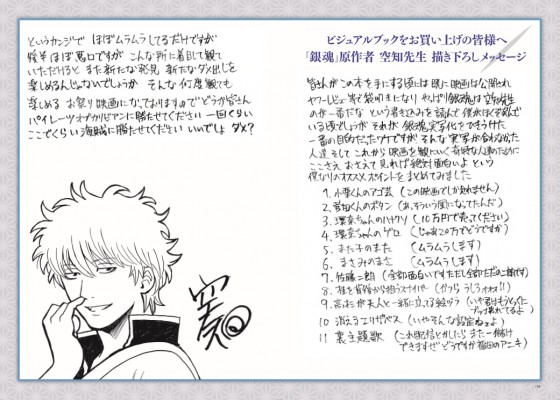 ビジュアルブックをお買い上げの皆様へ
『銀魂』原作者 空知先生 描き下ろしメッセージ
皆さんがこの本を手にする頃には既に映画は公開され
ヤフーレビュー当で袋叩きになり やっぱり銀魂は空知先生
の方が一番だな という書き込みを読んで 僕がほくそ笑んで
いる頃でしょうが それが 銀魂実写化をひきうけた
一番の目的だったワケですが そんな実写が合わなかった
人達 そして これから映画を観にいく奇特な人達のために
ここさえおさえて見れば絶対面白いよ という
僕なりのオススメポイントをまとめてみました
1. 小栗くんのアゴ芸 (この映画でしか見れません)
2. 菅田くんのボタン (あ、そういう風になってたんだ)
3. 環奈ちゃんのハナクソ (10万円で売ってください)
4. 環奈ちゃんのゲロ (じゃあ20万でどうですか)
5. また子のまた (ムラムラします)
6. まさみのまさ (ムラムラします)
7. 佐藤二朗 (全部面白いです ただし全部ただの二朗です)
8. 桂を背後から狙うスナイパー (かつら うしろうしろ!!)
9. 高杉が夫人と一緒に立てる絵ヅラ
10 消えるエリザベス (いやそんな設定ねェよ)
11 裏主題歌 (これ配信とかしたら また一儲け
できますぜ どうですか 福田のアニキ)
というカンジで ほぼムラムラしてるだけですが
後半 ほぼ悪口ですが こんな所に着目して観て
いただけると また新たな発見 新たなダメ出しを
楽しめるんじゃないでしょうか そんな何度観ても
楽しめる お祭り映画になっておりますので どうか皆さん
パイレーツオブカリビアンに勝たせてください 一回くらい
ここでくらい海賊に勝たせてください いいでしょ ダメ?
空知